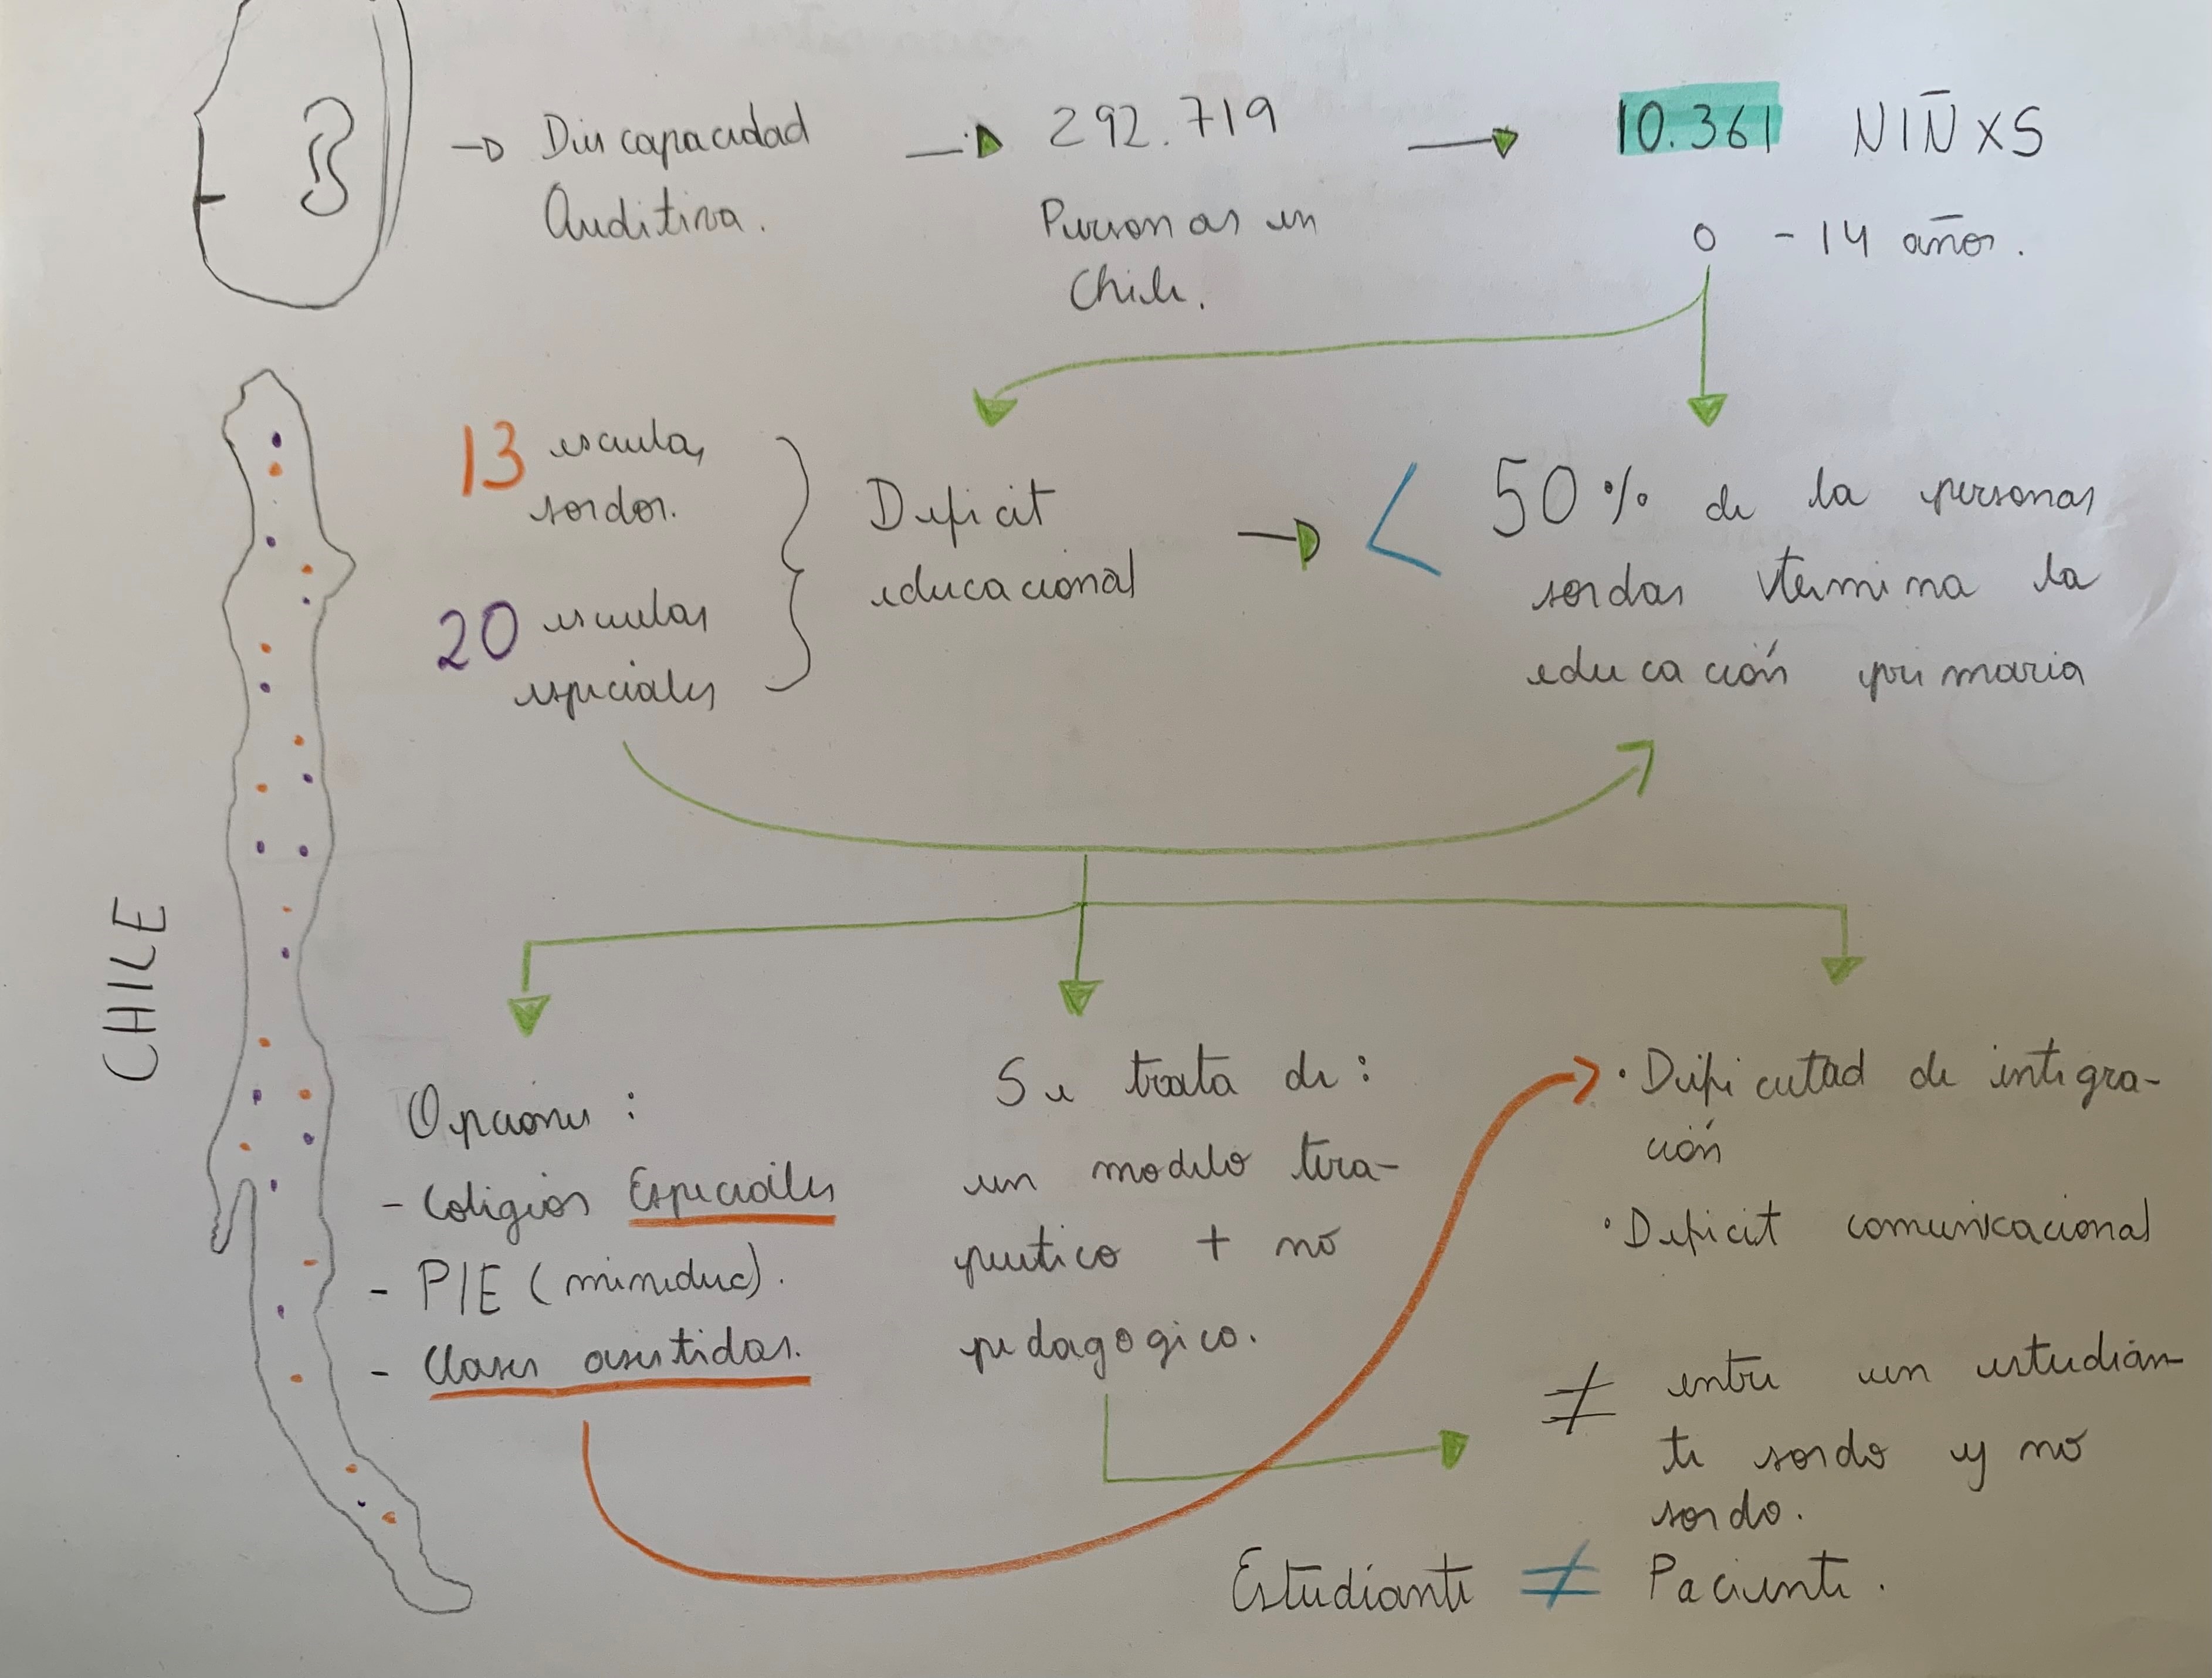 Discapacidad
Auditiva.
292.719
Personas en
Chile.
10.361 NIÑXS
0 - 14 años.
13 escuelas
sordos.
20 escuelas
especiales
Deficit
educacional
< 50% de la personas
sordas termina la
educación primaria
CHILE
Opciones :
- Colegios Especiales
- PIE (mineduc).
- Clases asistidas.
Se trata de :
un modelo tera-
peutico + no
pedagogico.
· Dificutad de integra-
ción
· Deficit comunicacional
≠ entre un estudian-
te sordo y no
sordo.
Estudiante ≠ Paciente.